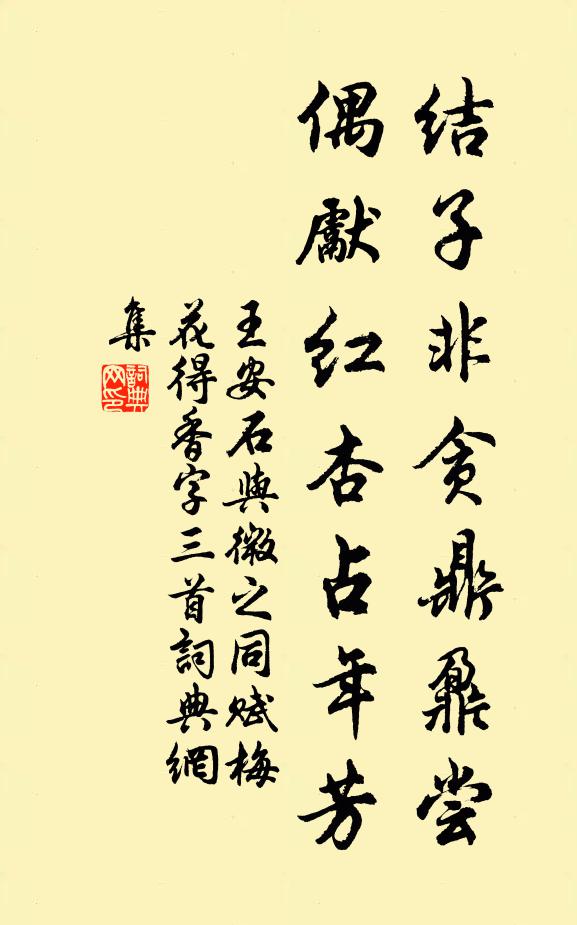 结子非贪鼎鼐尝
偶獻红杏占年芳
王安石與微之同赋梅
花得香字三首詞典網
集
詞典
网印